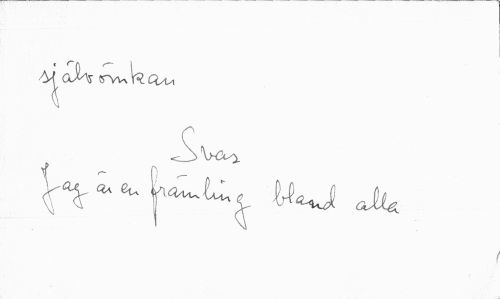 självömkan
Svar
Jag är en främling bland alla